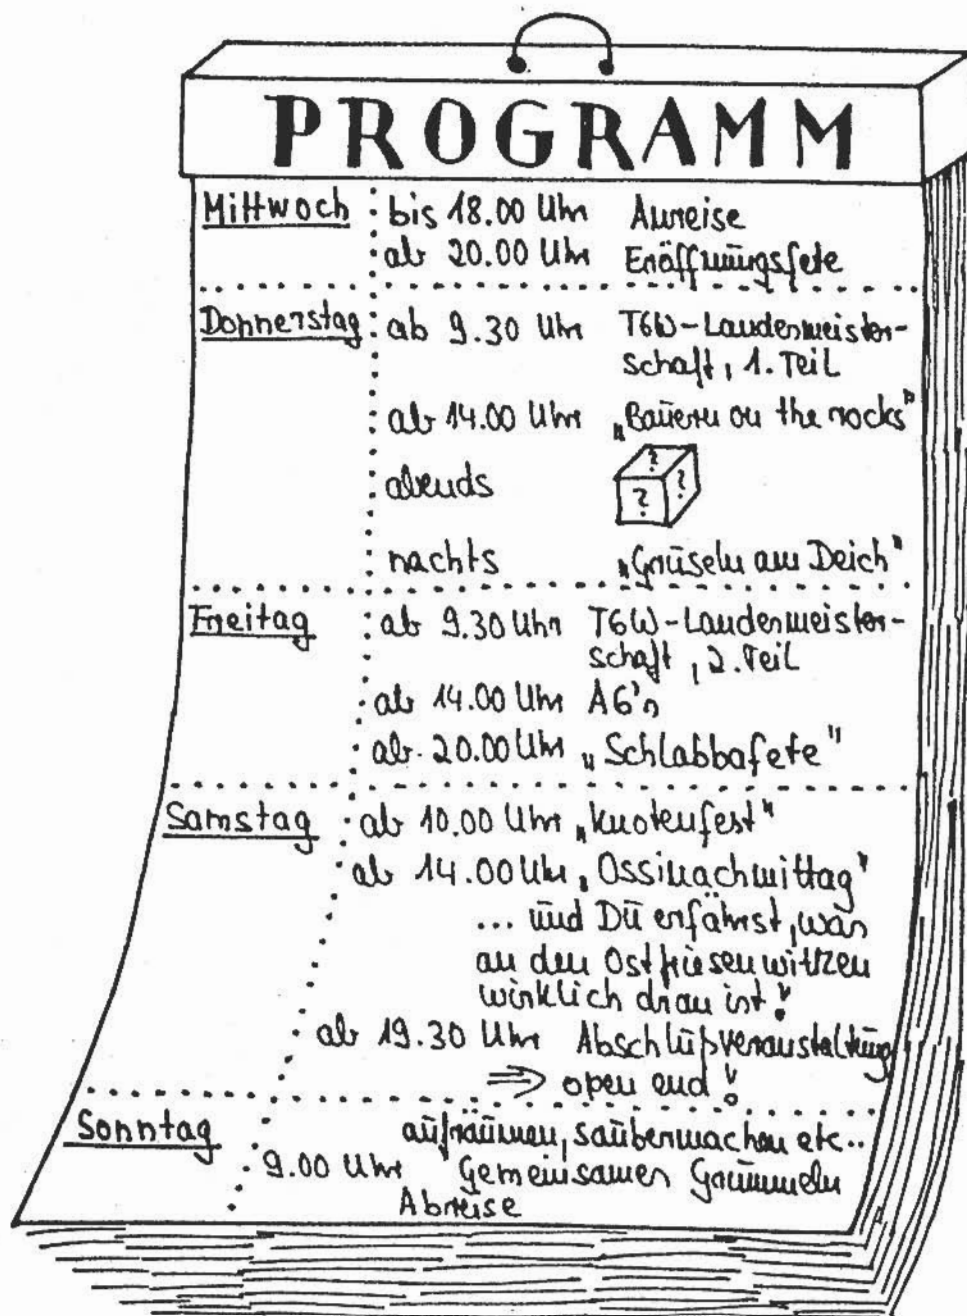 PROGRAMM
Mittwoch bis 18.00 Uhr Anreise
ab 20.00 Uhr Eröffnungsfete
Donnerstag ab 9.30 Uhr TGW-Landesmeister-
schaft, 1. Teil
ab 14.00 Uhr „Bauern on the rocks"
abends ? ? ?
nachts „Gruseln am Deich"
Freitag ab 9.30 Uhr TGW-Landesmeister-
schaft, 2. Teil
ab 14.00 Uhr AG's
ab 20.00 Uhr „Schlabbafete"
Samstag ab 10.00 Uhr „Knotenfest"
ab 14.00 Uhr „Ossinachmittag"
... und Du erfährst, was
an den Ostfriesenwitzen
wirklich dran ist!
ab 19.30 Uhr Abschlußveranstaltung
⇒ open end!
Sonntag aufräumen, saubermachen etc..
9.00 Uhr Gemeinsames Grummeln
Abreise